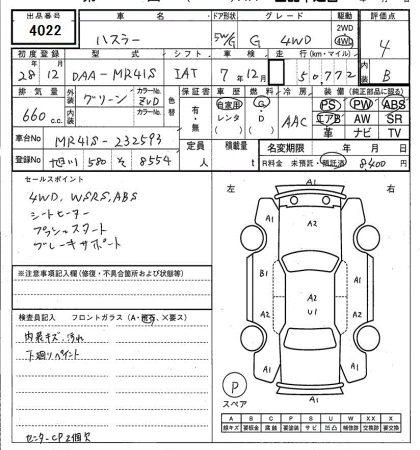 出品番号 車名 ドア形状 グレード 駆動 評価点
4022 ハスラー 5W/G G 4WD 2WD 4WD 4
初度登録 型式 シフト 車検 走行(km・マイル) 内装
28年12月 DAA-MR41S IAT 7年12月 50,772 B
排気量 外装 カラーNo. 色替 保証書 車歴 燃料 冷房 装備(純正部品に限る)
660c.c. グリーン ZVD 有・無 自家用 レンタ G・D AAC PS PW ABS
エアB AW SR
革 ナビ TV
車台No MR41S-232593 定員 人 積載量 t
登録No 旭川 580 そ 8554
名変期限 年 月 日
R料金 未預託・預託済 8,400円
セールスポイント
4WD, WSRS, ABS
シートヒーター
プッシュスタート
ブレーキサポート
※注意事項記入欄(修復・不具合箇所および状態等)
検査員記入 フロントガラス(A・飛石、×要ス)
内装キズ、汚れ
下廻りペイント
センターCP2個欠
左 右
A1
A1 A2 A1
B1 A2 A1
U1
A1 A2 A1
A1
P
スペア
A B C P S U W XX X
線キズ 要板金 腐蝕 要塗装 サビ 凹凸 補修跡 交換跡 要交換